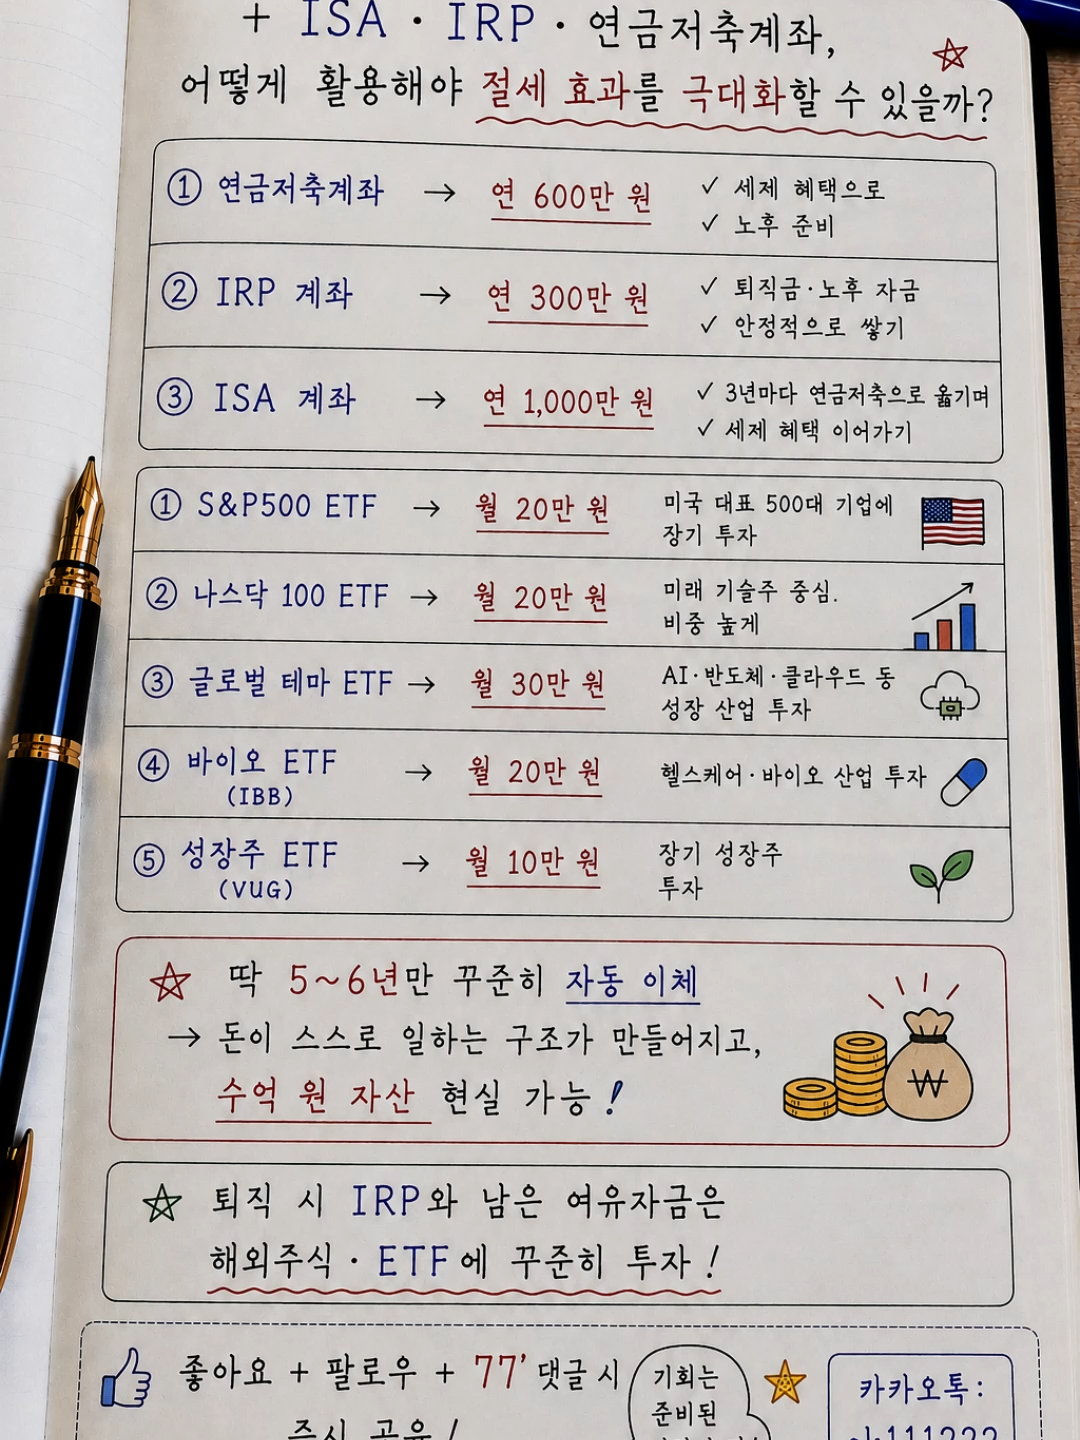 + ISA · IRP · 연금저축계좌,
어떻게 활용해야 절세 효과를 극대화할 수 있을까?
① 연금저축계좌 → 연 600만 원 ✓ 세제 혜택으로
✓ 노후 준비
② IRP 계좌 → 연 300만 원 ✓ 퇴직금·노후 자금
✓ 안정적으로 쌓기
③ ISA 계좌 → 연 1,000만 원 ✓ 3년마다 연금저축으로 옮기며
✓ 세제 혜택 이어가기
① S&P500 ETF → 월 20만 원 미국 대표 500대 기업에
장기 투자
② 나스닥 100 ETF → 월 20만 원 미래 기술주 중심.
비중 높게
③ 글로벌 테마 ETF → 월 30만 원 AI·반도체·클라우드 등
성장 산업 투자
④ 바이오 ETF → 월 20만 원 헬스케어·바이오 산업 투자
(IBB)
⑤ 성장주 ETF → 월 10만 원 장기 성장주
(VUG) 투자
딱 5~6년만 꾸준히 자동 이체
→ 돈이 스스로 일하는 구조가 만들어지고,
수억 원 자산 현실 가능!
₩
퇴직 시 IRP와 남은 여유자금은
해외주식 · ETF에 꾸준히 투자!
좋아요 + 팔로우 + 77' 댓글 시
즉시 공유!
기회는
준비된
카카오톡: